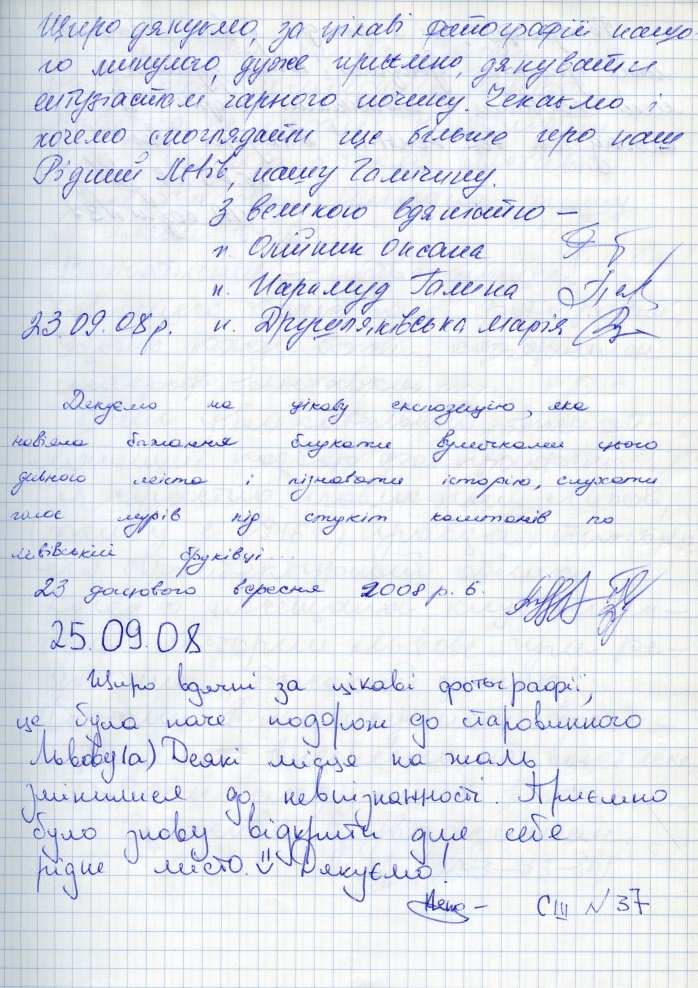 Щиро дякуємо, за цікаві фотографії нашо-
го минулого, дуже приємно, дякувати
ентузіастам гарного почину. Чекаємо і
хочемо споглядати ще більше про наш
Рідний Львів, нашу Галичину.
З великою вдячністю —
п. Олійник Оксана
п. Шарамуд Галина
23.09.08р. п. Другиляківська Марія
Дякуємо за цікаву експозицію, яка
навіяла бажання блукати вуличками цього
дивного міста і пізнавати історію, слухати
голос мурів під стукіт каштанів по
львівській бруківці...
23 дощового вересня 2008 р. Б.
25.09.08
Щиро вдячні за цікаві фотографії,
це була наче подорож до старовинного
Львову(а) Деякі місця на жаль
змінилися до невпізнанності. Приємно
було знову відкрити для себе
рідне місто. Дякуємо!
СШ № 37